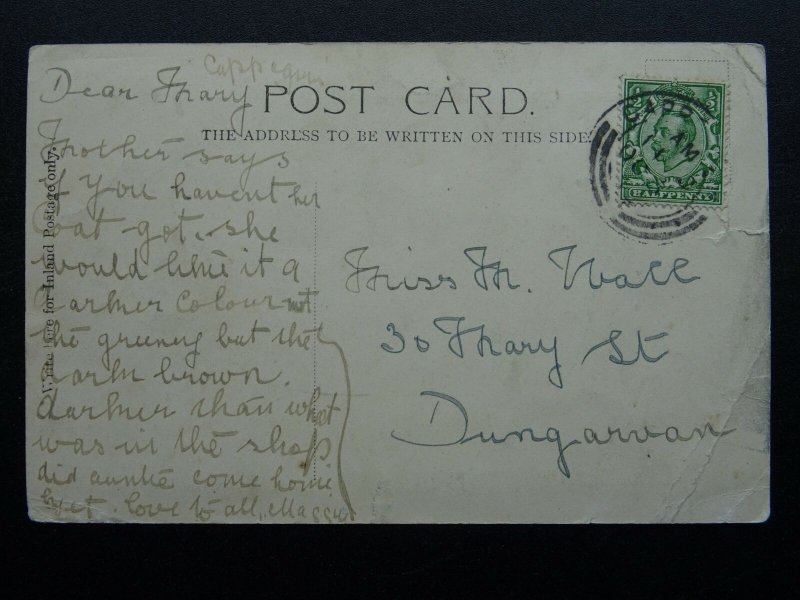 Cappoquin
Dear Mary
Mother says
if you havent her
coat got. she
would like it a
darker colour not
the greeney but the
dark brown.
darker than what
was in the shop
did auntie come home
yet. love to all, Maggie
POST CARD.
THE ADDRESS TO BE WRITTEN ON THIS SIDE
Write here for Inland Postage only.
HALFPENNY
CAPP
AM
Miss M. Wall
30 Mary St
Dungarvan